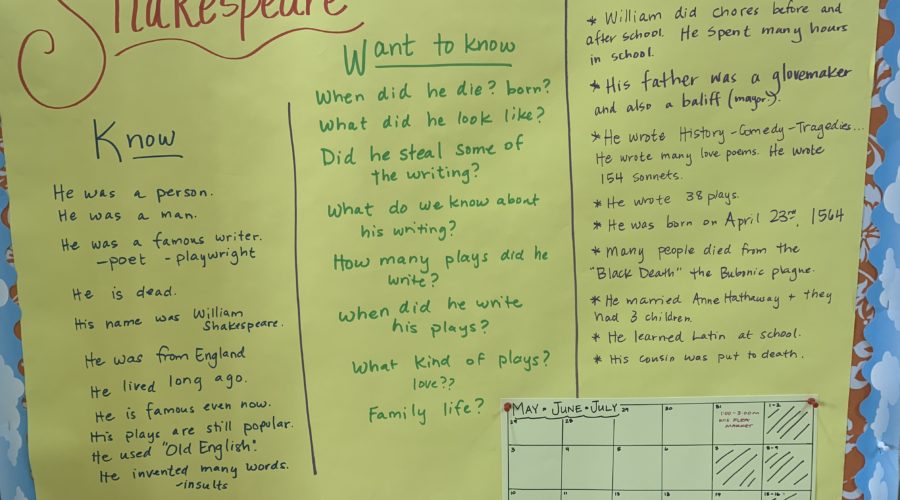 Shakespeare
Know
He was a person.
He was a man.
He was a famous writer.
-poet -playwright
He is dead.
His name was William
Shakespeare.
He was from England
He lived long ago.
He is famous even now.
His plays are still popular.
He used "Old English".
He invented many words.
-insults
Want to know
When did he die? born?
What did he look like?
Did he steal some of
the writing?
What do we know about
his writing?
How many plays did he
write?
When did he write
his plays?
What kind of plays?
love??
Family life?
* William did chores before and
after school. He spent many hours
in school.
* His father was a glovemaker
and also a baliff (mayor).
* He wrote History-Comedy-Tragedies...
He wrote many love poems. He wrote
154 sonnets.
* He wrote 38 plays.
* He was born on April 23rd, 1564
* Many people died from the
"Black Death" the Bubonic plague.
* He married Anne Hathaway + they
had 3 children.
* He learned Latin at school.
* His cousin was put to death.
MAY • JUNE • JULY
28 29 30 31 1-2
1:00-3:00
FLEA
MARKET
3 4 5 6 7 8-9
10 11 12 13 14 15-16